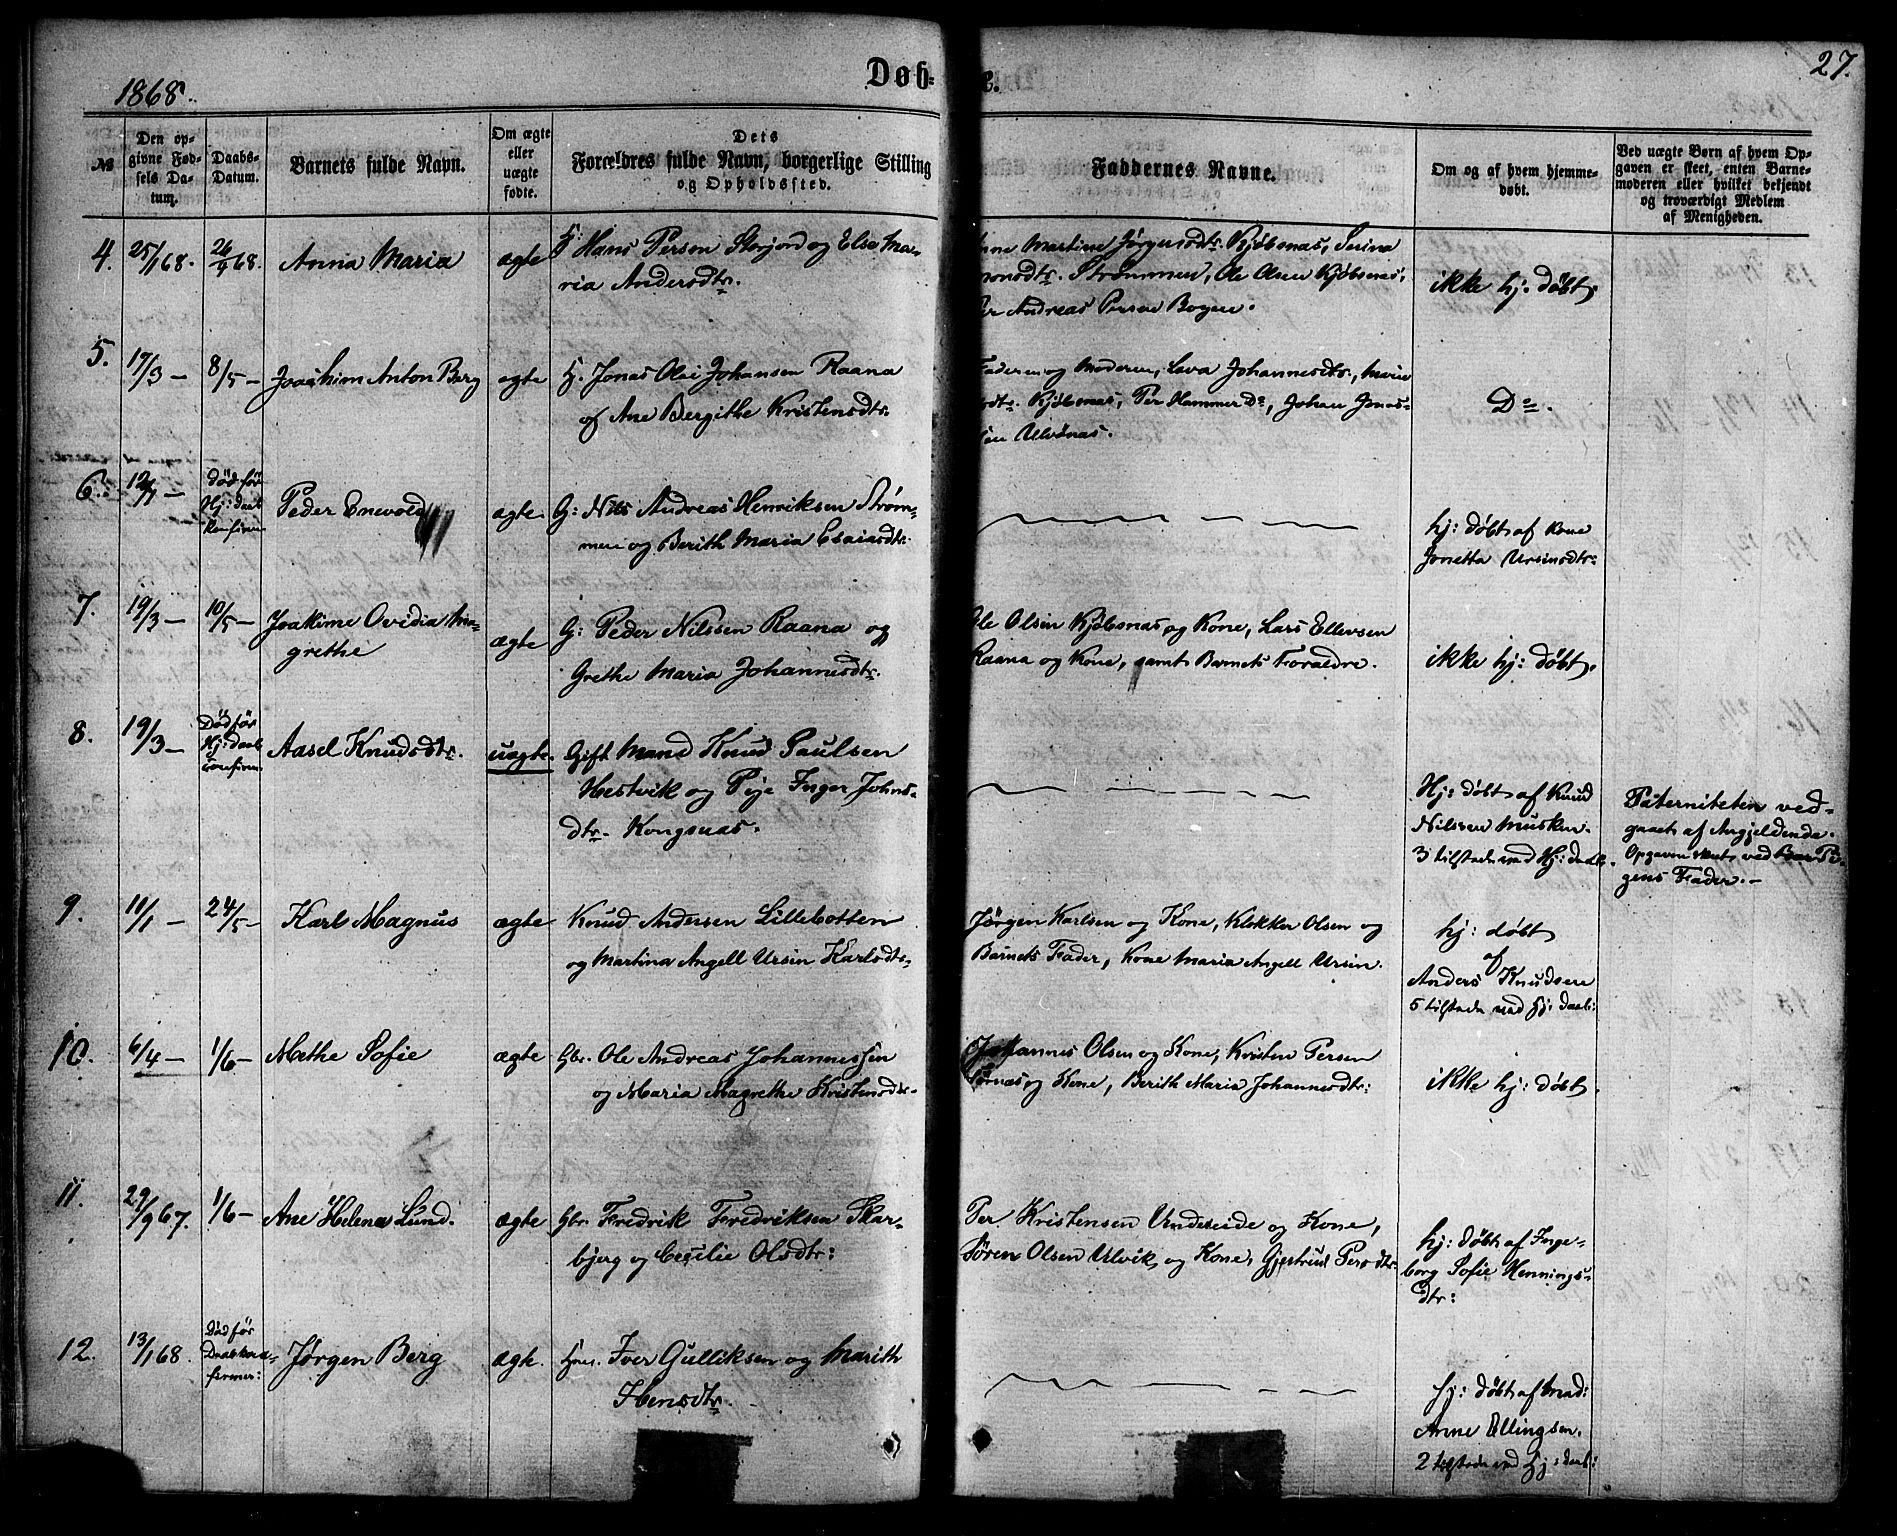 1868.
Døb=
e.
27.
№
Den op=
givne Fød=
sels Da=
tum.
Daabs=
Datum.
Barnets fulde Navn.
Om ægte
eller
uægte
fødte.
Dets
Forældres fulde Navn, borgerlige Stilling
og Opholdssted.
Faddernes Navne.
Om og af hvem hjemme=
døbt.
Ved uægte Børn af hvem Op=
gaven er skeet, enten Barne=
moderen eller hvilket bekjendt
og troværdigt Medlem
af Menigheden.
4. 25/1 68. 26/4 68. Anna Maria ægte Hans Person Storjord og Else Ma=
ria Andersdtr.
Martine Jørgensdtr. Kjøbsnæs, Serina
Strømmen, Ole Olsen Kjøbsnæs,
Andreas Persen Bogen.
ikke hj: døbt.
5. 17/3 — 8/5 — Joachim Anton Berg ægte Jonas Olai Johansen Raana
og Ane Bergithe Kristensdtr.
Faderen og Moderen, Lava Johannesdtr., Marie
Kjøbsnæs, Per Hammer Do, Johan Jonas=
sen Ulvønæs.
Do.
6. 12/1 — død før
Hj: daab
konfirm
Peder Enevold ægte G: Nils Andreas Henriksen Strøm=
men og Berith Maria Esaiasdtr.
hj: døbt af Kone
Jonetta Ursinsdtr:
7. 19/3 — 10/5 — Joakime Ovidia Ma=
grethe
ægte G: Peder Nilssen Raana og
Grethe Maria Johannesdtr.
Ole Olsen Kjøbsnæs og Kone, Lars Ellevsen
Raana og Kone, samt Barnets Forældre.
ikke hj: døbt.
8. 19/3 — Død før
Hj: daab
confirm.
Aasel Knudsdtr. uægte. Gift Mand Knud Paulsen
Hestvik og Pige Inger Johns=
dtr. Kongsnæs.
Hj: døbt af Knud
Nilssen Musken.
3 tilstede ved Hj: daab.
Paterniteten ved=
gaaet af Angjeldende.
Opgaven skeet ved Pi=
gens Fader. —
9. 11/1 — 24/5 — Karl Magnus ægte Knud Andersen Lillebotten
og Martina Angell Ursin Karlsdtr.
Jørgen Karlsen og Kone, Klokker Olsen og
Barnets Fader, Kone Maria Angell Ursin.
hj: døbt
af
Anders Knudsen
5 tilstede ved Hj: daab:
10. 6/4 — 1/6 — Mathe Sofie ægte Gbr. Ole Andreas Johannessen
og Maria Magrethe Kristensdtr.
Johannes Olsen og Kone, Kristen Persen
og Kone, Berith Maria Johannesdtr:
ikke hj: døbt.
11. 29/9 67. 1/6 — Ane Helena Lund. ægte Gbr. Fredrik Fredriksen Skar=
bjerg og Cecilie Olsdtr:
Per Kristensen Undereide og Kone,
Søren Olsen Ulvik og Kone, Gjertrud Persdtr.
hj: døbt af Inge=
borg Sofie Hennings=
dtr:
12. 13/1 68. Død før
Daabskon=
firmer:
Jørgen Berg ægte. Iver Gulliksen og Marith
Hensdtr.
hj: døbt af Mad:
Anne Ellingsen.
2 tilstede ved hj: daab: